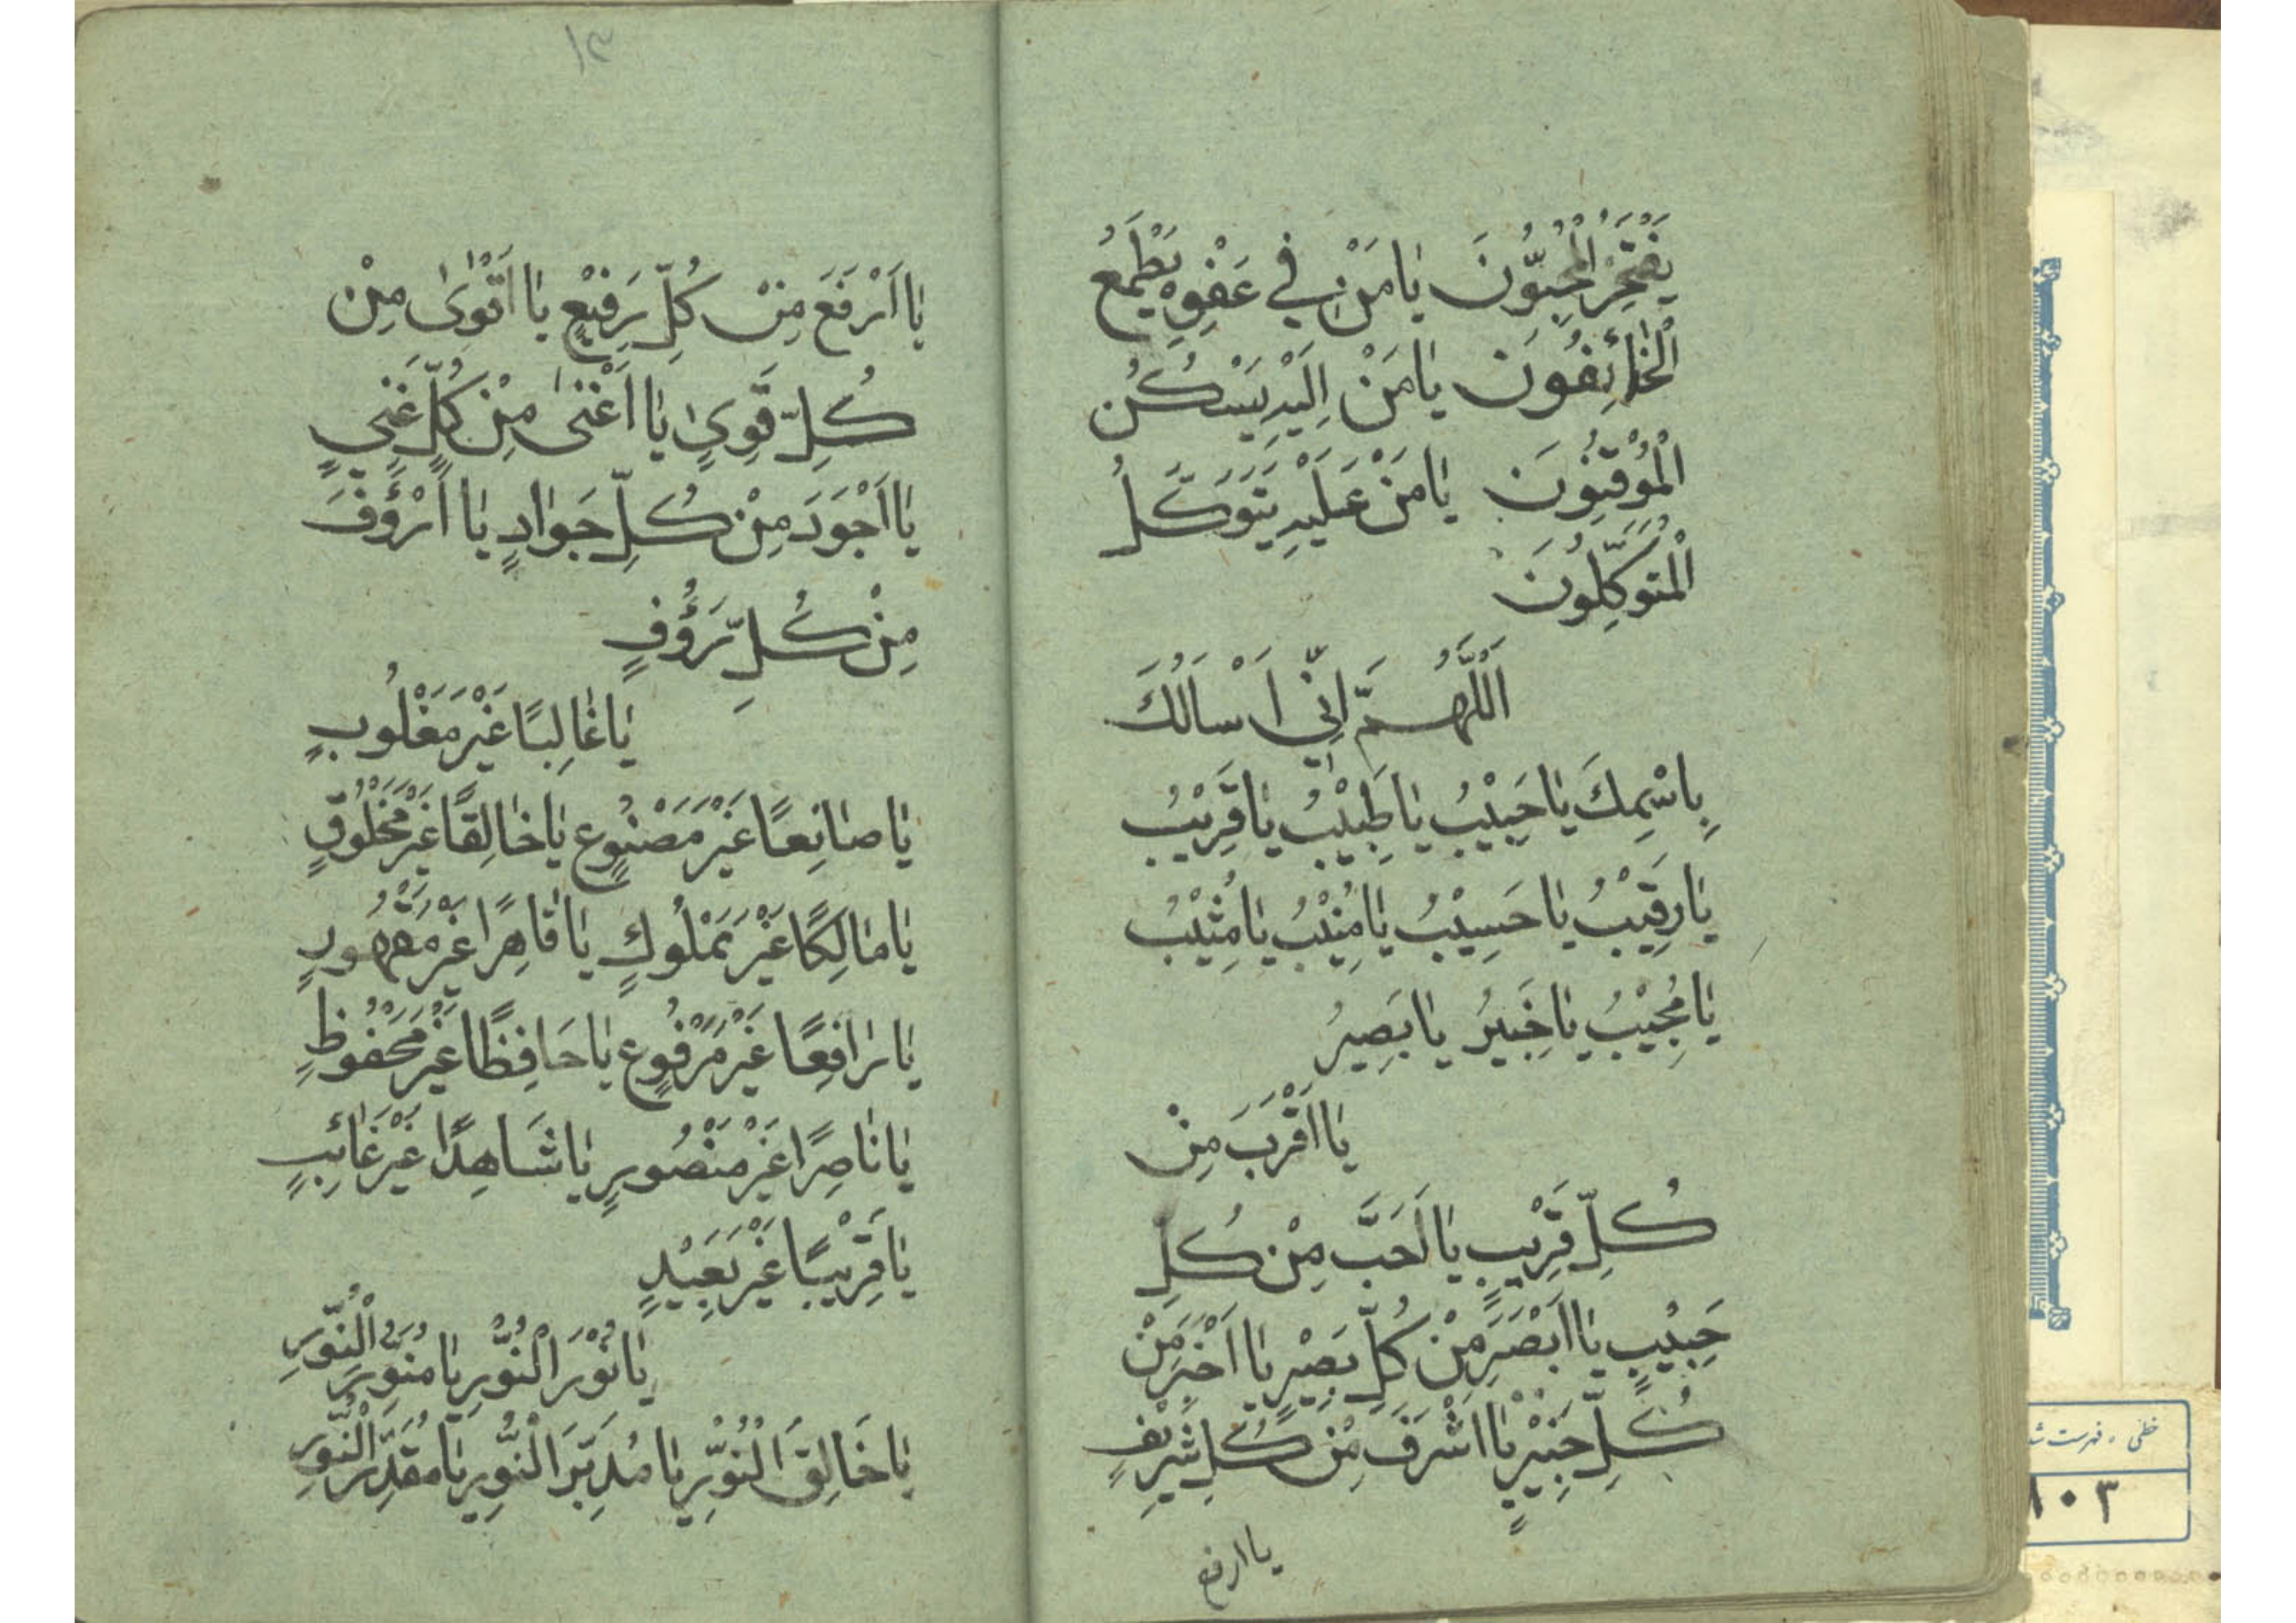 يَفْتَخِرُ الْمُحِبُّونَ يَا مَنْ فِي عَفْوِهِ يَطْمَعُ
الْخَائِفُونَ يَا مَنْ اِلَيْهِ يَسْكُنُ
الْمُوْقِنُونَ يَا مَنْ عَلَيْهِ يَتَوَكَّلُ
الْمُتَوَكِّلُونَ
اَللّٰهُمَّ اِنِّي اَسْالُكَ
بِاسْمِكَ يَا حَبِيْبُ يَا طَبِيْبُ يَا قَرِيْبُ
يَا رَقِيْبُ يَا حَسِيْبُ يَا مُنِيْبُ يَا مُثِيْبُ
يَا مُجِيْبُ يَا خَبِيرُ يَا بَصِيرُ
يَا اَقْرَبَ مِنْ
كُلِّ قَرِيْبٍ يَا اَحَبَّ مِنْ كُلِّ
حَبِيْبٍ يَا اَبْصَرَ مِنْ كُلِّ بَصِيْرٍ يَا اَخْبَرَ مِنْ
كُلِّ خَبِيْرٍ يَا اَشْرَفَ مِنْ كُلِّ شَرِيْفٍ
يا ارفع
۱۳
يَا اَرْفَعَ مِنْ كُلِّ رَفِيْعٍ يَا اَقْوىٰ مِنْ
كُلِّ قَوِيٍ يَا اَغْنىٰ مِنْ كُلِّ غَنِيٍ
يَا اَجْوَدَ مِنْ كُلِّ جَوَادٍ يَا اَرْؤَفَ
مِنْ كُلِّ رَؤُفٍ
يَا غَالِبًا غَيْرَ مَغْلُوبٍ
يَا صَانِعًا غَيْرَ مَصْنُوعٍ يَا خَالِقًا غَيْرَ مَخْلُوقٍ
يَا مَالِكًا غَيْرَ مَمْلُوكٍ يَا قَاهِرًا غَيْرَ مَقْهُورٍ
يَا رَافِعًا غَيْرَ مَرْفُوعٍ يَا حَافِظًا غَيْرَ مَحْفُوظٍ
يَا نَاصِرًا غَيْرَ مَنْصُورٍ يَا شَاهِدًا غَيْرَ غَائِبٍ
يَا قَرِيْبًا غَيْرَ بَعِيْدٍ
يَا نُوْرَ النُّوْرِ يَا مُنَوِّرَ النُّوْرِ
يَا خَالِقَ النُّوْرِ يَا مُدَبِّرَ النُّوْرِ يَا مُقَدِّرَ النُّوْرِ
خطی ، فهرست شد
۱۰۳